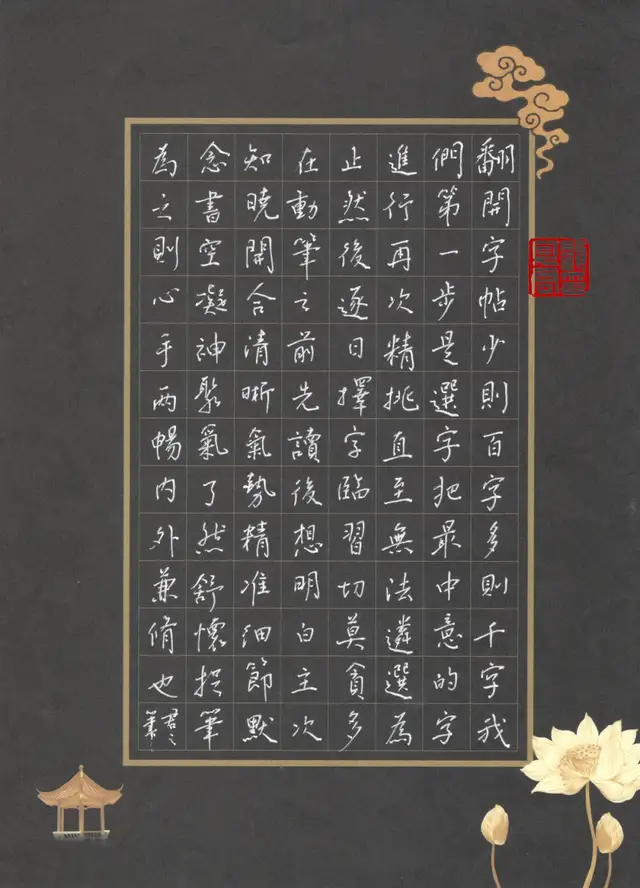 翻開字帖少則百字多則千字我
們第一步是選字把最中意的字
進行再次精挑直至無法遴選為
止然後逐日擇字臨習切莫貪多
在動筆之前先讀後想明白主次
知曉開合清晰氣勢精准細節默
念書空凝神聚氣了然舒懷提筆
為之則心手兩暢内外兼脩也